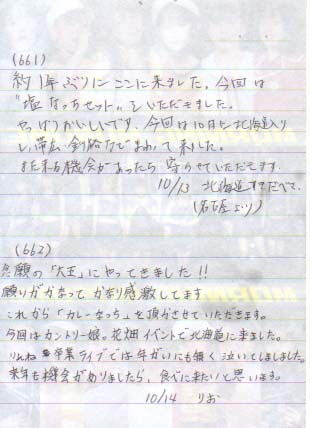 (661)
約1年ぶりにここに来ました。今回は
"塩なっちセット"をいただきました。
やっぱりおいしいです。今回は10日に北海道入り
し、帯広・釧路などまわって来ました。
また来る機会があったら寄らせていただきます。
10/13 北海道すてがたべて。
(名古屋より)
(662)
念願の「大王」にやってきました!!
願いがかなってかなり感激してます
これから「カレーなっち」を頂かさせていただきます。
今回はカントリー娘。花畑イベントで北海道に来ました。
りんね卒業ライブでは年がいにも無く泣いてしまいました。
来年も機会がありましたら、食べに来たいと思います。
10/14 りお